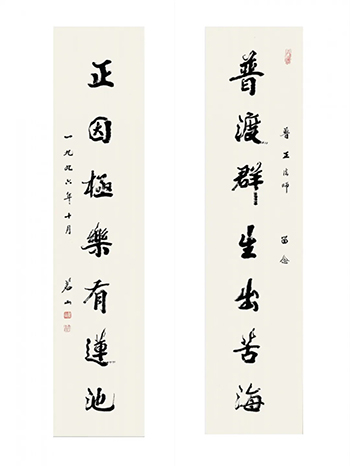 普渡群生出苦海
普正法师 留念
正因極樂有蓮池
一九九六年十月
茗山